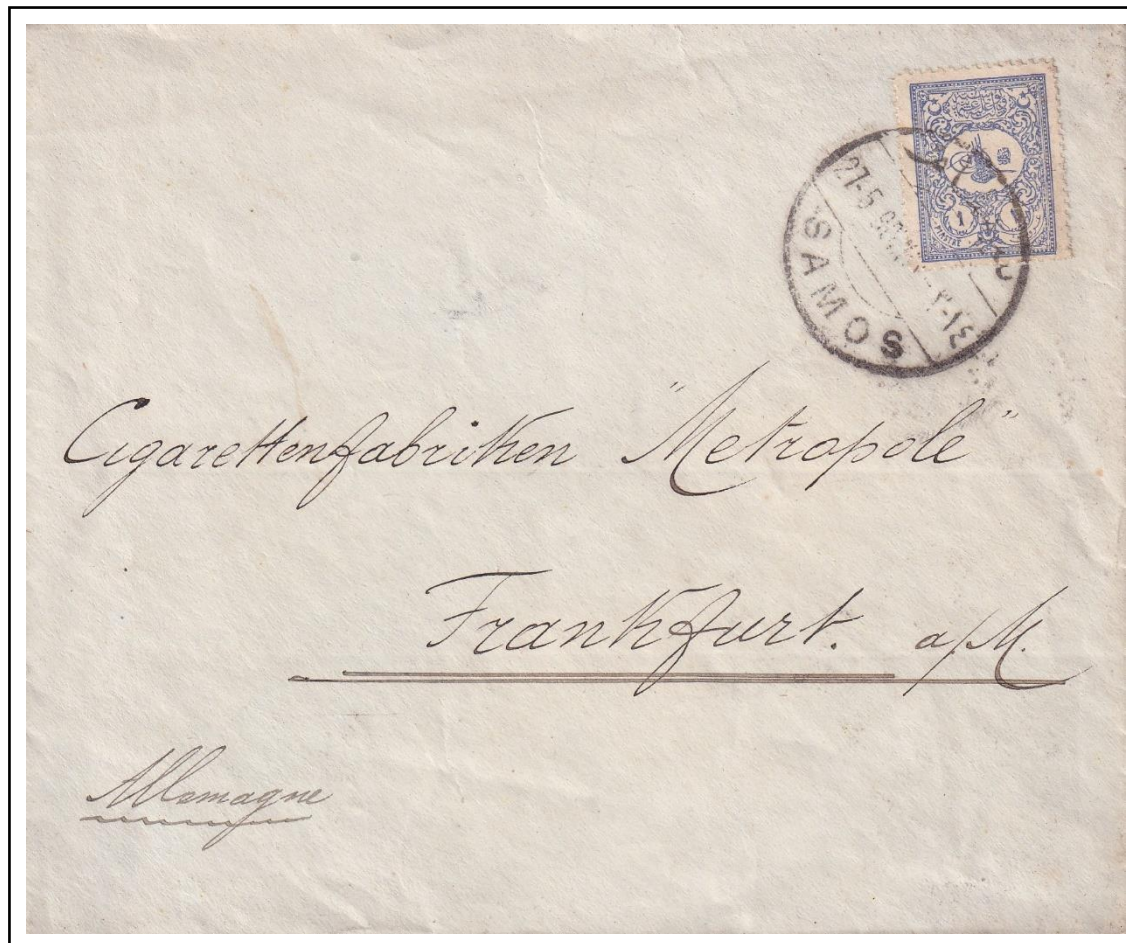 PIASTRE
SAMOS
Cigarettenfabriken "Metropole"
Frankfurt. a/M.
Allemagne